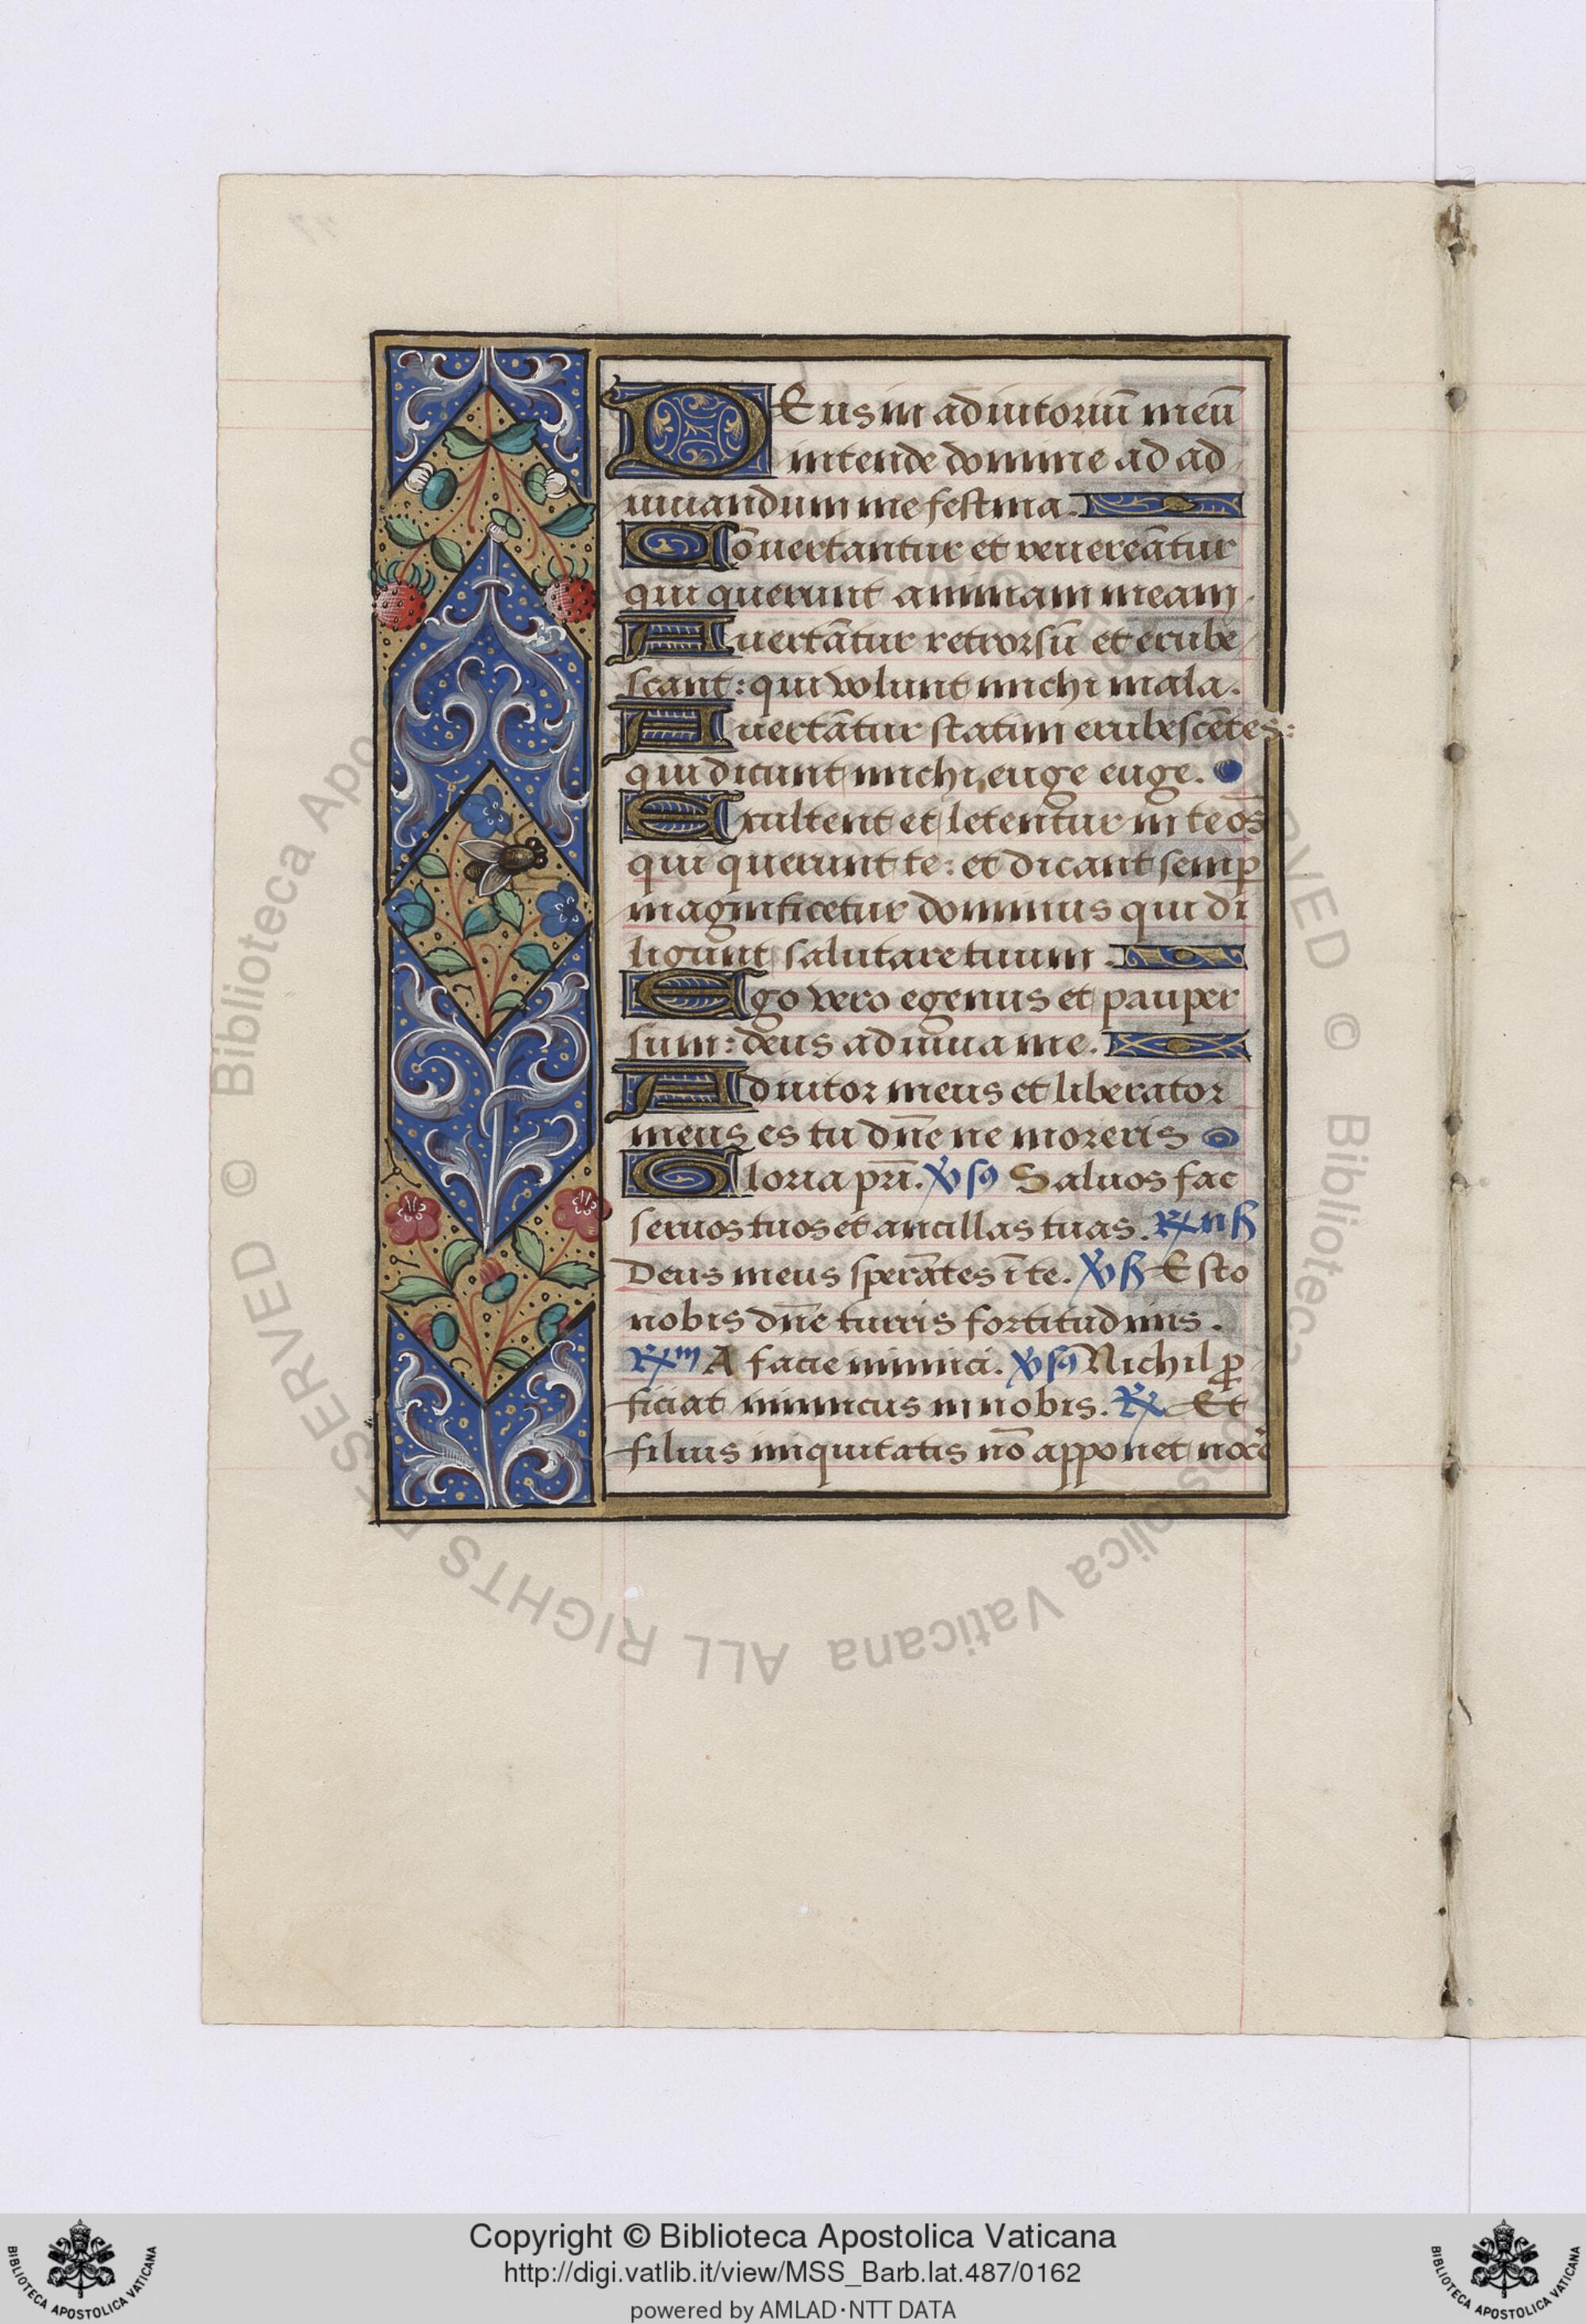 DEus in adiutoriū meū
intende domine ad ad
iuuandum me festina.
Cōuertantur et reuereātur
qui querunt animam meam.
Auertātur retrorsū et erube
scant: qui volunt michi mala.
Auertātur statim erubescētes:
qui dicunt michi euge euge.
Exultent et letentur in te oēs
qui querunt te: et dicant semꝑ
magnificetur dominus qui di
ligunt salutare tuum.
Ego vero egenus et pauper
sum: deus adiuua me.
Adiutor meus et liberator
meus es tu dn̄e ne moreris
Gloria pr̄i. Saluos fac
seruos tuos et ancillas tuas.
Deus meus sperātes ī te. Esto
nobis dn̄e turris fortitudinis.
A facie inimici. Nichil ꝓ
ficiat inimicus in nobis. ℟ Et
filius iniquitatis nō apponet
Copyright © Biblioteca Apostolica Vaticana
http://digi.vatlib.it/view/MSS_Barb.lat.487/0162
powered by AMLAD·NTT DATA
BIBLIOTECA APOSTOLICA VATICANA
BIBLIOTECA APOSTOLICA VATICANA
© Biblioteca Apostolica Vaticana ALL RIGHTS RESERVED